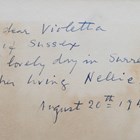 dear Violetta
of Sussex
lovely day in Surre
her loving Nellie
August 20th 19